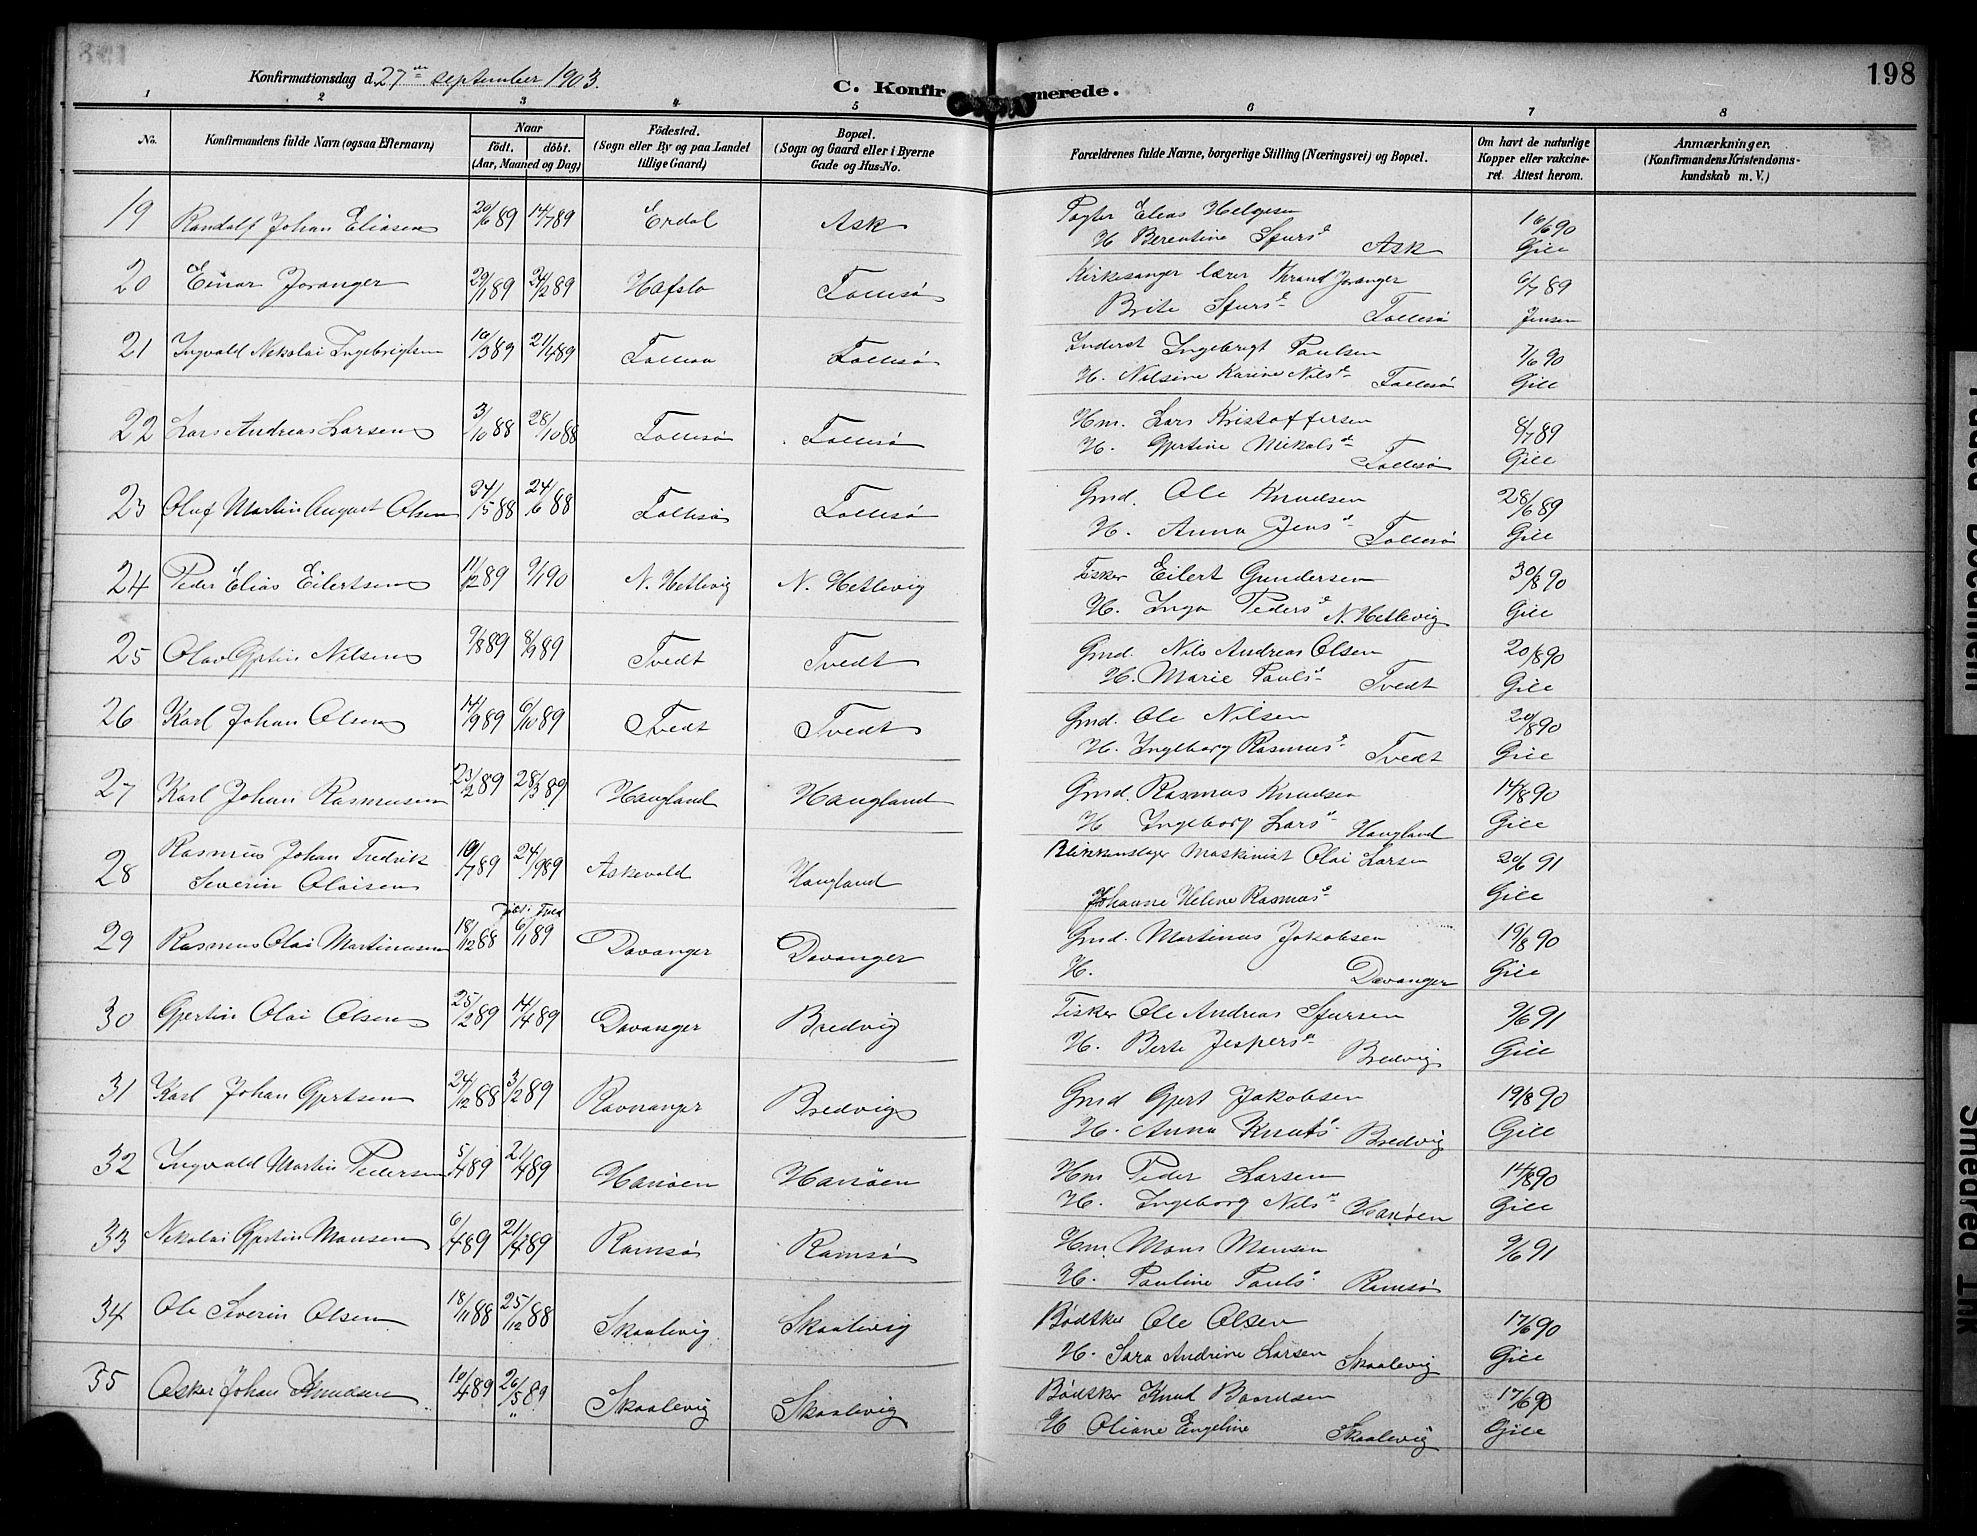 198
Konfirmationsdag d. 27de september 1903.
C. Konfirmerede.
1 2 3 4 5 6 7 8
No. Konfirmandens fulde Navn (ogsaa Efternavn) Naar födt. döbt. (Aar, Maaned og Dag) Födested. (Sogn eller By og paa Landet tillige Gaard) Bopæl. (Sogn og Gaard eller i Byerne Gade og Hus-No. Forældrenes fulde Navne, borgerlige Stilling (Næringsvei) og Bopæl. Om havt de naturlige Kopper eller vakcineret. Attest herom. Anmærkninger. (Konfirmandens Kristendomskundskab m. V.)
19 Randolf Johan Eliasen 20/6 89 14/7 89 Erdal Ask Pagter Elias Helgesen 16/6 90
H Berentine Sjursd Ask Gill
20 Einar Joranger 29/1 89 24/2 89 Hafslo Follesø Kirkesanger lærer Thrand Joranger 6/7 89
Brite Sjursd Follesø Jensen
21 Ingvald Nikolai Ingebrigtsen 10/3 89 21/4 89 Follesø Follesø Inderst Ingebrigt Paulsen 7/6 90
H. Nilsine Karine Nilsd Follesø Gill
22 Lars Andreas Larsen 3/10 88 28/10 88 Follesø Follesø Hm. Lars Kristoffersen 8/7 89
H. Gjertine Mikalsd Follesø Gill
23 Oluf Martin August Olsen 24/5 88 24/6 88 Follesø Follesø Gmd. Ole Knudsen 28/6 89
H. Anna Jensd Follesø Gill
24 Peder Elias Eilertsen 11/12 89 9/1 90 N. Hetlevig N. Hetlevig Fisker Eilert Gundersen 30/8 90
H. Inga Pedersd N. Hetlevig Gill
25 Olav Gjertin Nilsen 9/8 89 8/9 89 Tvedt Tvedt Gmd. Nils Andreas Olsen 20/8 90
H. Marie Paulsd Tvedt Gill
26 Karl Johan Olsen 14/9 89 6/10 89 Tvedt Tvedt Gmd. Ole Nilsen 20/8 90
H. Ingeborg Rasmusd Tvedt Gill
27 Karl Johan Rasmussen 23/2 89 28/3 89 Haugland Haugland Gmd. Rasmus Knudsen 14/8 90
H Ingeborg Larsd Haugland Gill
28 Rasmus Johan Fredrik 10/7 89 24/9 89 Askevold Haugland Blikkenslager Maskinist Olai Larsen 20/6 91
Severin Olaisen Johanne Helene Rasmusd Gill
29 Rasmus Olai Martinusen 18/12 88 6/1 89 Davanger Davanger Gmd. Martinus Jakobsen 19/8 90
H. Davanger Gill
30 Gjertin Olai Olsen 25/2 89 14/4 89 Davanger Bredvig Fisker Ole Andreas Sjursen 9/6 91
H. Berte Jespersd Bredvig Gill
31 Karl Johan Gjertsen 24/12 88 3/2 89 Ravnanger Bredvig Gmd Gjert Jakobsen 19/8 90
H. Anna Knutsd Bredvig Gill
32 Ingvald Martin Pedersen 5/4 89 21/4 89 Hanøen Hanøen Hm Peder Larsen 14/8 90
H. Ingeborg Nilsd Hanøen Gill
33 Nikolai Gjertin Monsen 6/4 89 21/4 89 Ramsø Ramsø Hm. Mons Monsen 9/6 91
H. Pauline Paulsd Ramsø
34 Ole Severin Olsen 18/11 88 25/12 88 Skaalevig Skaalevig Bødtker Ole Olsen 17/6 90
H. Sara Andrine Larsen Skaalevig Gill
35 Oskar Johan Knudsen 10/4 89 26/5 89 Skaalevig Skaalevig Bødtker Knud Baardsen 17/6 90
H Oliane Engeline Skaalevig Gill